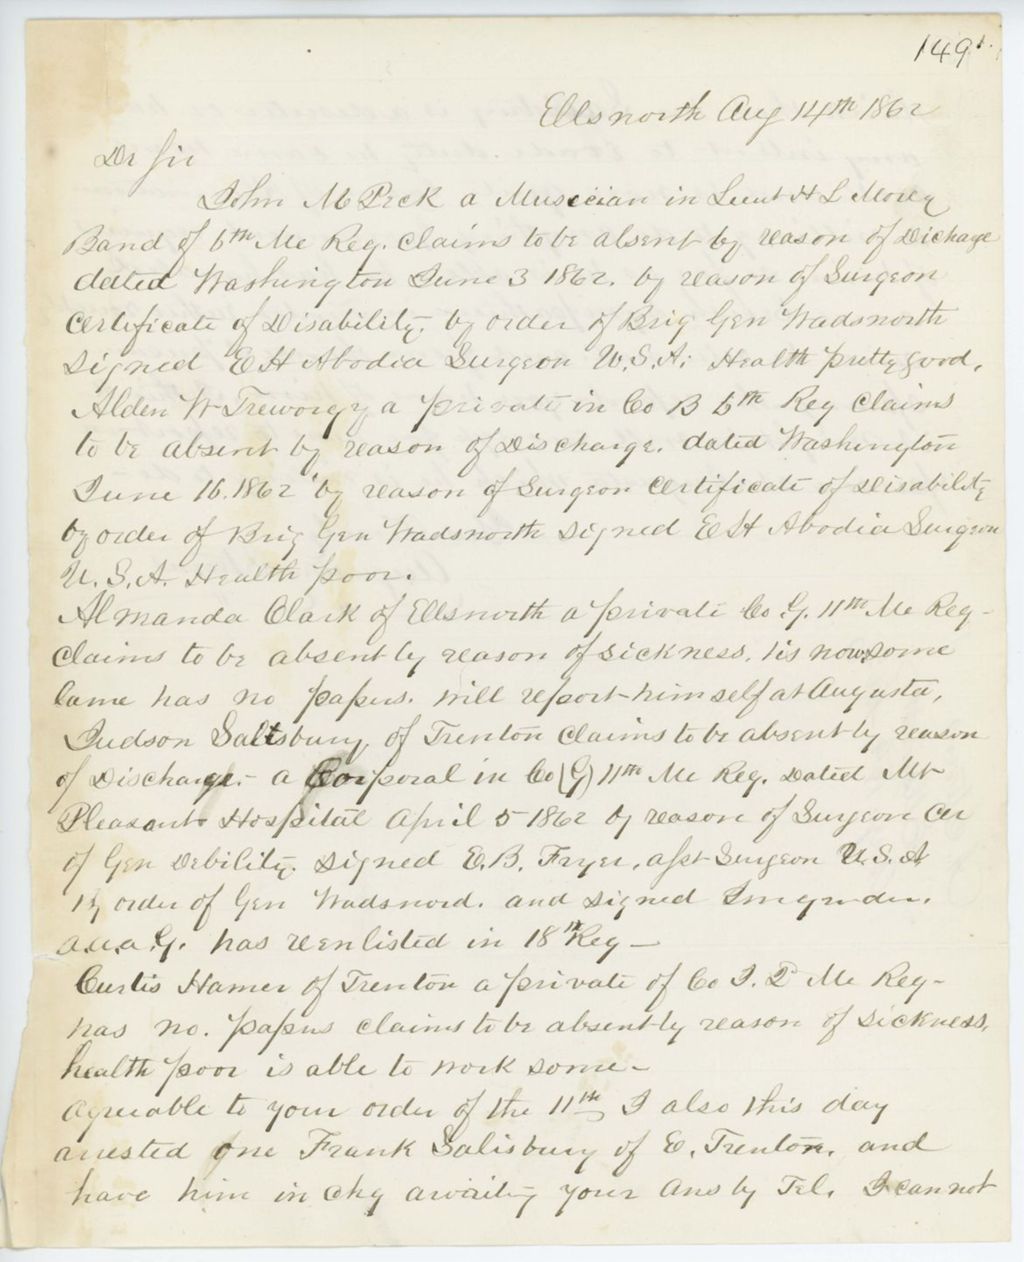 149
Ellsworth Aug 14th 1862
Dr Sir
John M Peck a Musician in Lieut H L
Band of 6th Me Reg. claims to be absent by reason of Dichage
dated Washington June 3 1862. by reason of Surgeon
certificate of Disability, by order of Brig Gen Wadsworth
signed Surgeon U.S.A. Health pretty good.
Alden W Treworgy a private in Co B 6th Reg claims
to be absent by reason of Discharge. dated Washington
June 16. 1862 by reason of Surgeon certificate of Disability
by order of Brig Gen Wadsworth signed Surgeon
U.S.A. Health poor.
Almanda Clark of Ellsworth a private Co G. 11th Me Reg-
claims to be absent by reason of sickness. now some
lame has no papers. will report himself at Augusta,
Judson Saltsbury, of Trenton claims to be absent by reason
of Discharge - a Corporal in Co (G) 11th Me Reg. Dated Mt
Pleasant Hospital April 5 1862 by reason of Surgeon Cer
of Gen Debility. signed E.B. Fryer, asst Surgeon U.S.A
By order of Gen and signed
has reenlisted in 18th Reg—
Curtis Hamer of Trenton a private of Co Me Reg-
has no. papers claims to be absent by reason of sickness,
health poor is able to work some-
agreeable to your order of the 11th I also this day
arrested one Frank Salisbury of E. Trenton. and
have him in chg awaiting your ans by Tel. I cannot